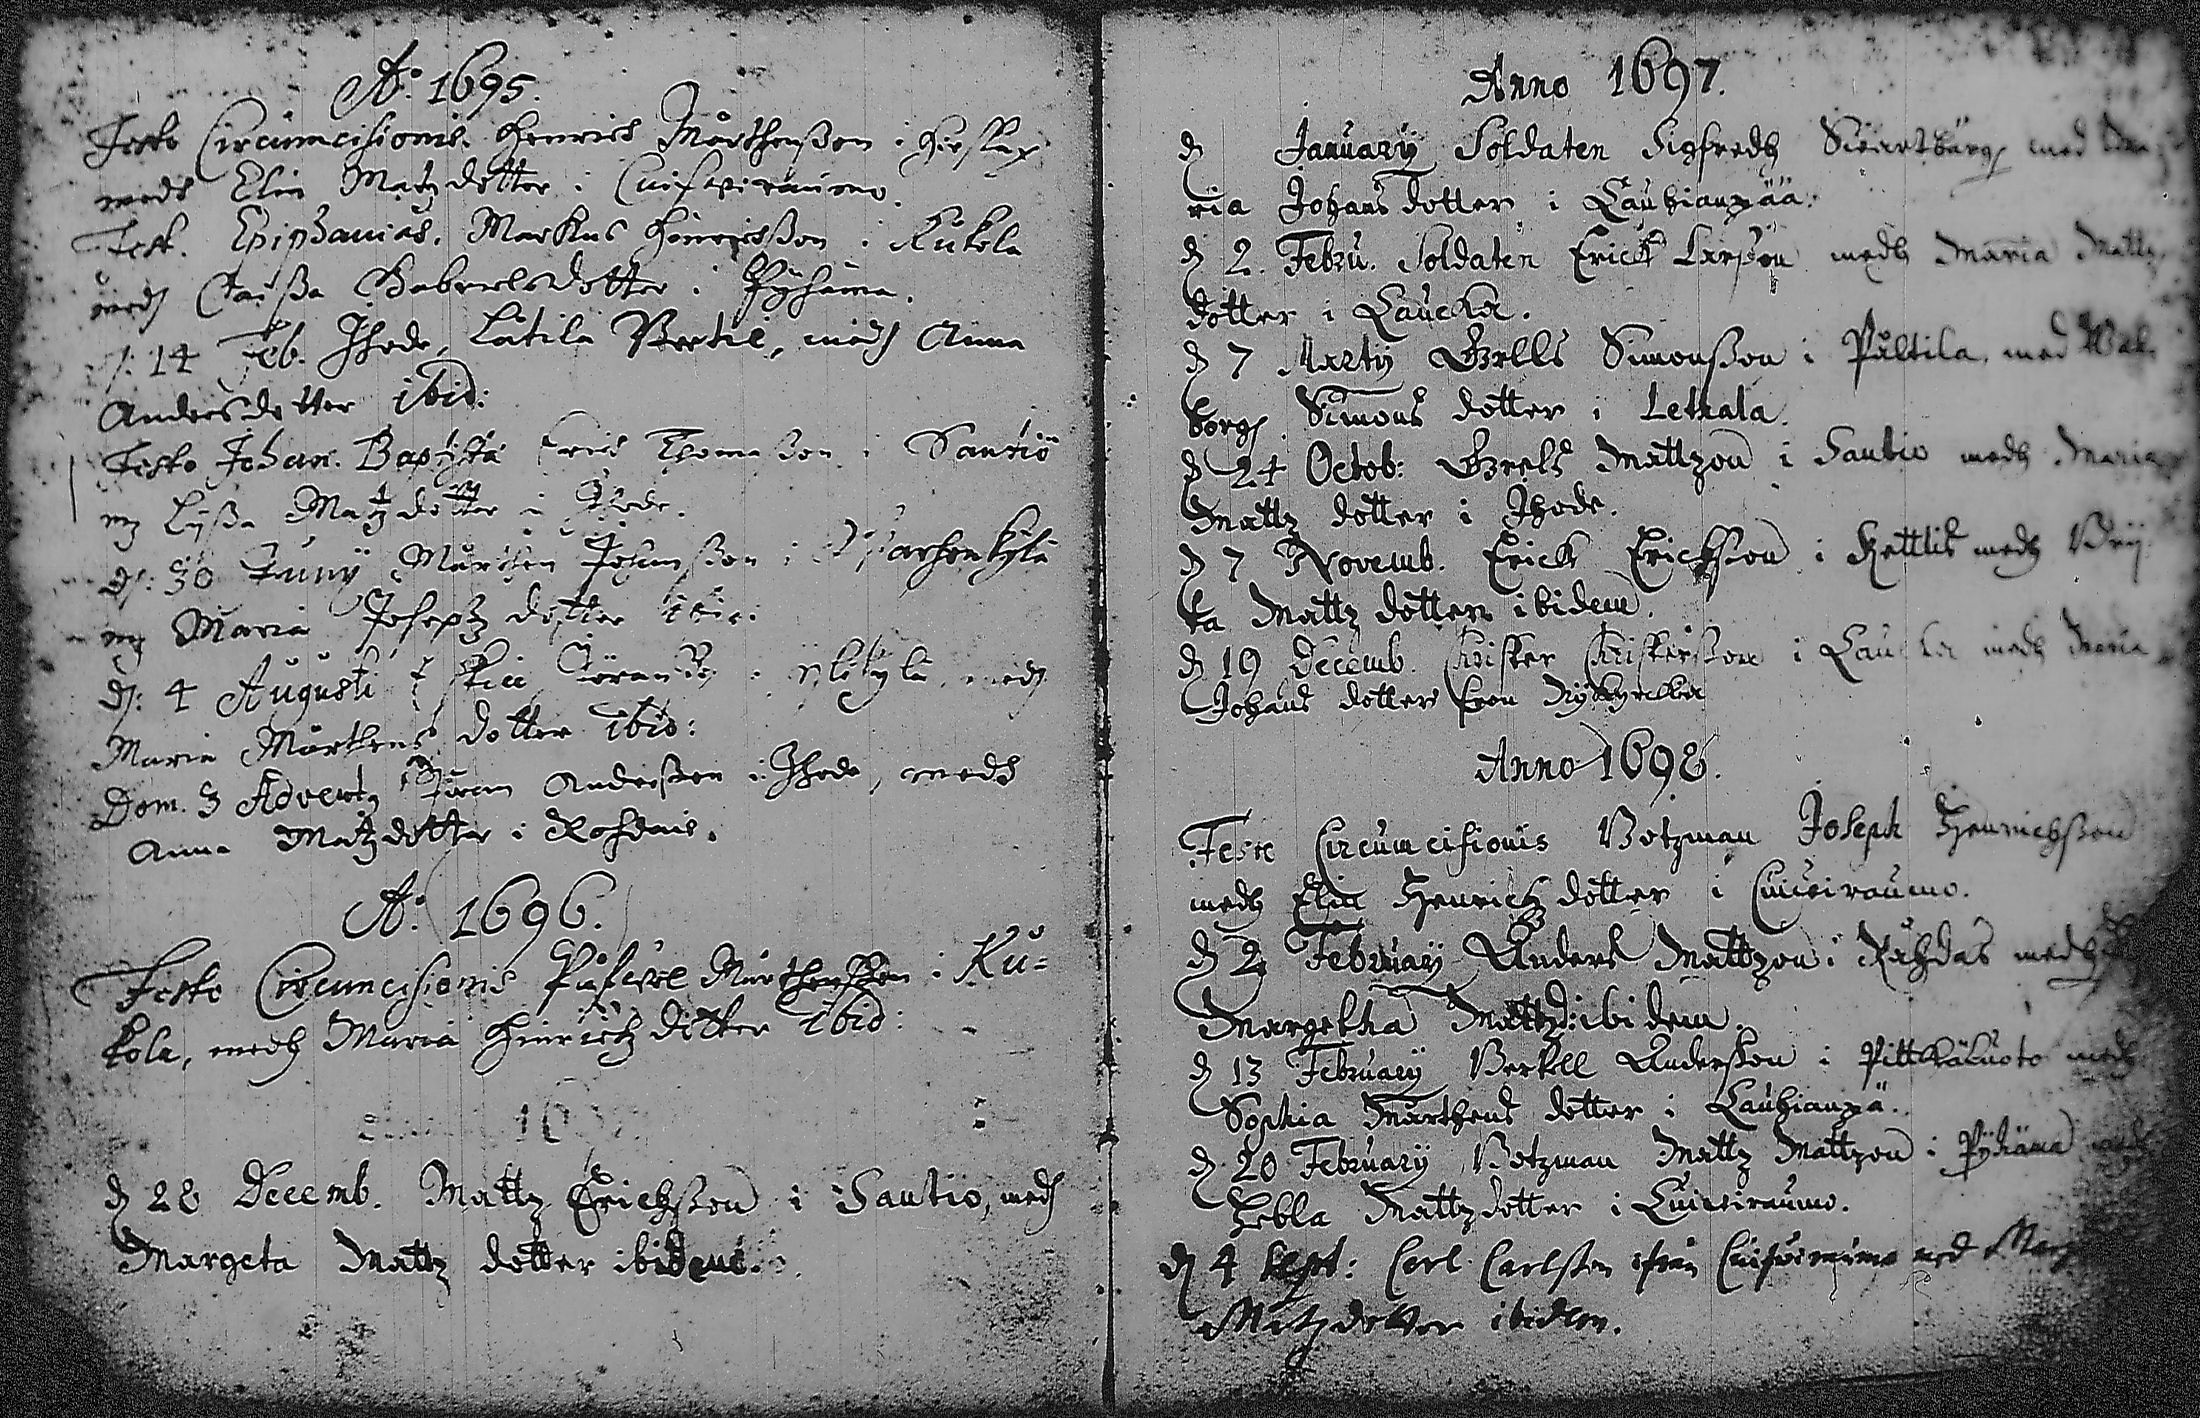 Ao. 1695.
Festo Circumcisionis. Henrich Mårthensson i
medh Elin Matzdotter i Cuifwiraumo.
Fest. Epiphanias. Markus Hinrichsson i Kukola
medh Caissa Gabrielsdotter i Pyhäma.
d: 14 Feb. Ihode, Låtila Bertil, medh Anna
Andersdotter ibid:
Festo Johan. Baptistæ Erich Thomasson i Santiö
m Lijssa Matzdotter i Ihode.
d: 30 Juny Mårthen Johansson i
m Maria Josephz dotter ibid:
d: 4 Augusti Eskill i Ylikylä, medh
Maria Mårthens dotter ibid:
Dom. 3 Adventq Juran Andersson i Ihode, medh
Anna Matzdotter i Rohdais.
Ao. 1696.
Festo Circumcisionis Mårthensson i Ku=
kola, medh Maria Hinrichz dotter ibid:
16
d 28 Decemb. Mattz Erichsson i Santio, medh
Margeta Mattz dotter ibidem.
Anno 1697.
d Januarij Soldaten Sigfredh Swartbärg med Ma
ria Johans dotter i Lauhianpää.
d 2. Febru. Soldaten Erick Larsson medh Maria Mattz
dotter i Laucka.
d 7 Martij Grells Simonsson i Påltila, med Wal
borg Simons dotter i Lethala.
d 24 Octob: Grels Mattzon i Santio medh Maria
Mattz dotter i Ihode.
d 7 Novemb. Erick Ericksson i Kettlis medh Brij
ta Mattz dotter ibidem.
d 19 Decemb. Christer Christersson i Laucka medh Maria
Johans dotter från Nykyrckia
Anno 1698.
Festo Circumcisionis Botzman Joseph Henrichsson
medh Elin Henrichz dotter i Cuiwiraumo.
d 2 February Anders Mattzon i Råhdas medh
Margetha Mattzd: ibidem.
d 13 February Bertell Andersson i Pittkäluoto medh
Sophia Mårthens dotter i Lauhianpä.
d 20 February Botzman Mattz Mattzon i Pyhäma medh
Hebla Mattzdotter i Cuiwiraumo.
d 4 Sept: Carl Carlsson ifrån Cuifwiraumo med Marg
Matzdotter ibidem.